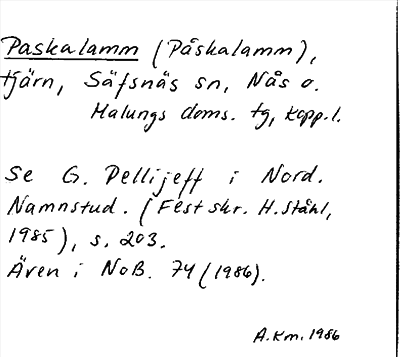 Paskalamm (Påskalamm),
tjärn, Säfsnäs sn, Nås o.
Malungs doms. tg, kopp.l.
Se G. Pellijeff i Nord.
Namnstud. (Festskr. H. Ståhl,
1985), s. 203.
Även i NoB. 74 (1986).
A.Km. 1986